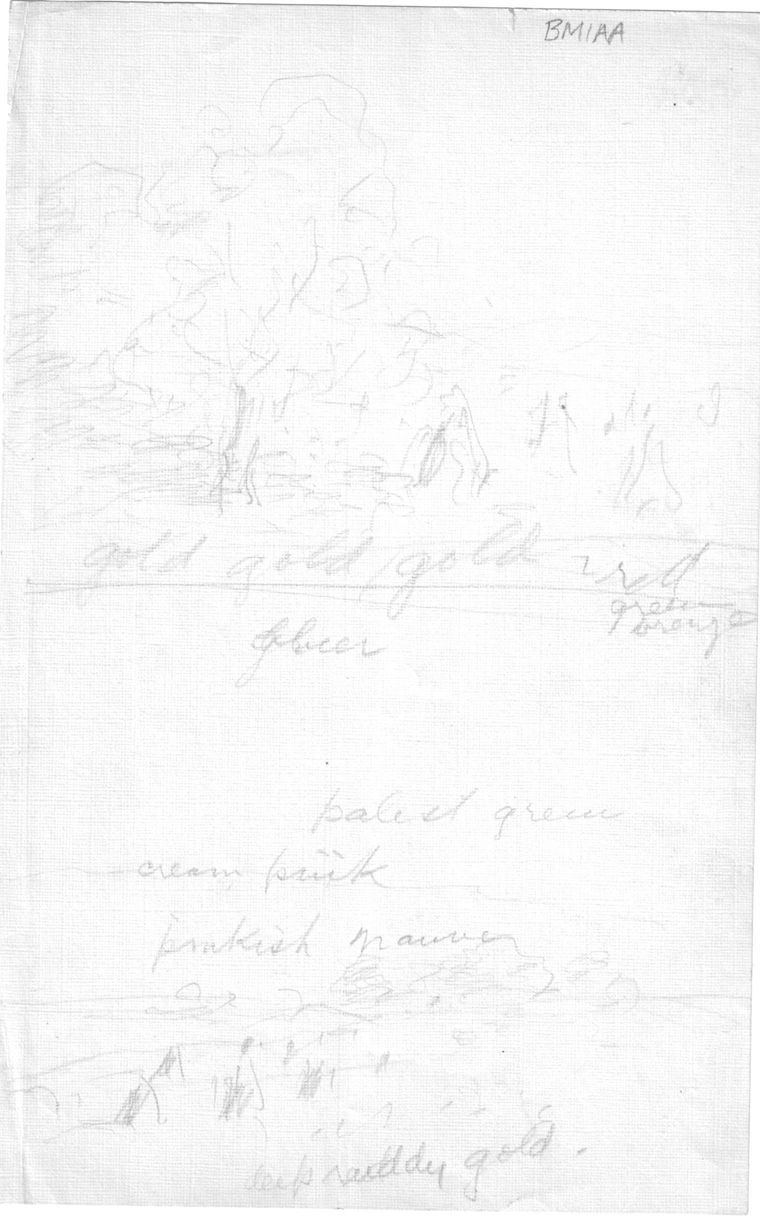 BM1AA
gold gold gold red
green
orange
palest green
cream pink
pinkish mauve
deep ruddy gold.